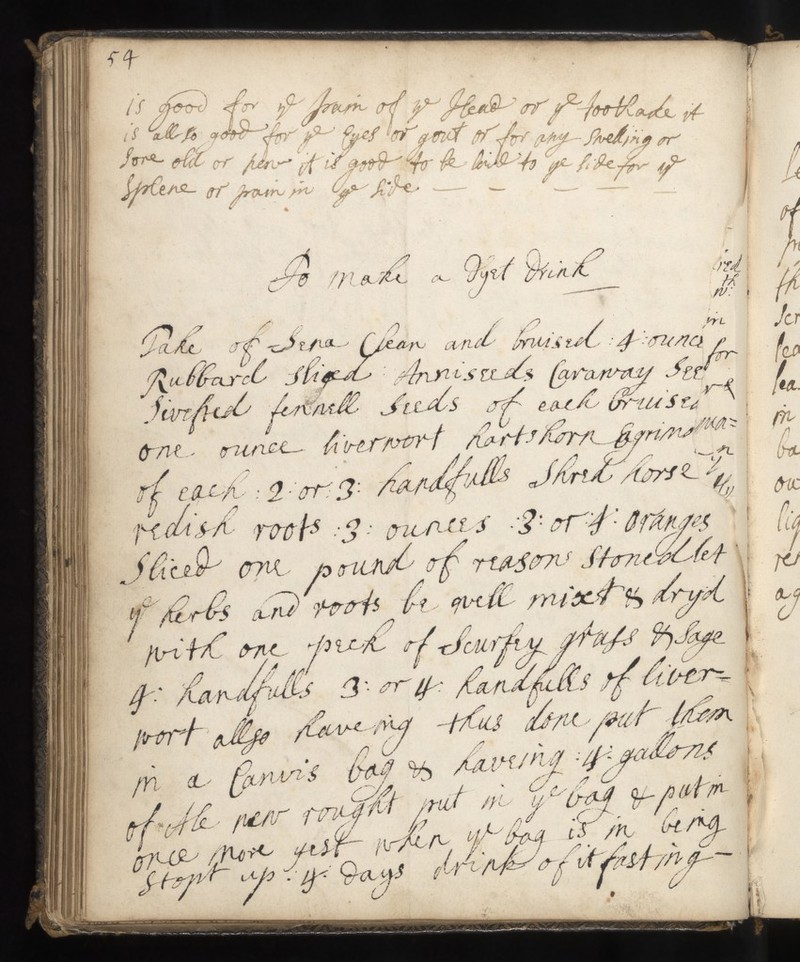 54
is good for ye pain of ye Head or ye toothake it
is allso good for ye Eyes or gout or for any Swelling or
Sore old or new it is good to be laid to ye side for ye
Splene or pain in ye Side
To make a Dyet Drink
Take of Sena Clean and bruised :4: ounc
Rubbard sliced Anniseeds Caraway See
Sivefted fennell Seeds of each bruised
one ounce liverwort hartshorn Egrimo
of each :2: or :3: handfulls Shred horse
redish roots :3: ounces :3: or :4: oranges
Sliced one pound of reasons stoned let
ye herbs and roots be well mixt & dryd
with one peck of Scurfey grass & Sage
4: handfulls 3: or 4: handfulls of liver=
wort allso haveing thus done put them
in a Canvis bag & haveing :4: gallons
of Ale new rought put in ye bag & put in
once more yest when ye bag is in being
Stopt up :4: days drink of it fasting